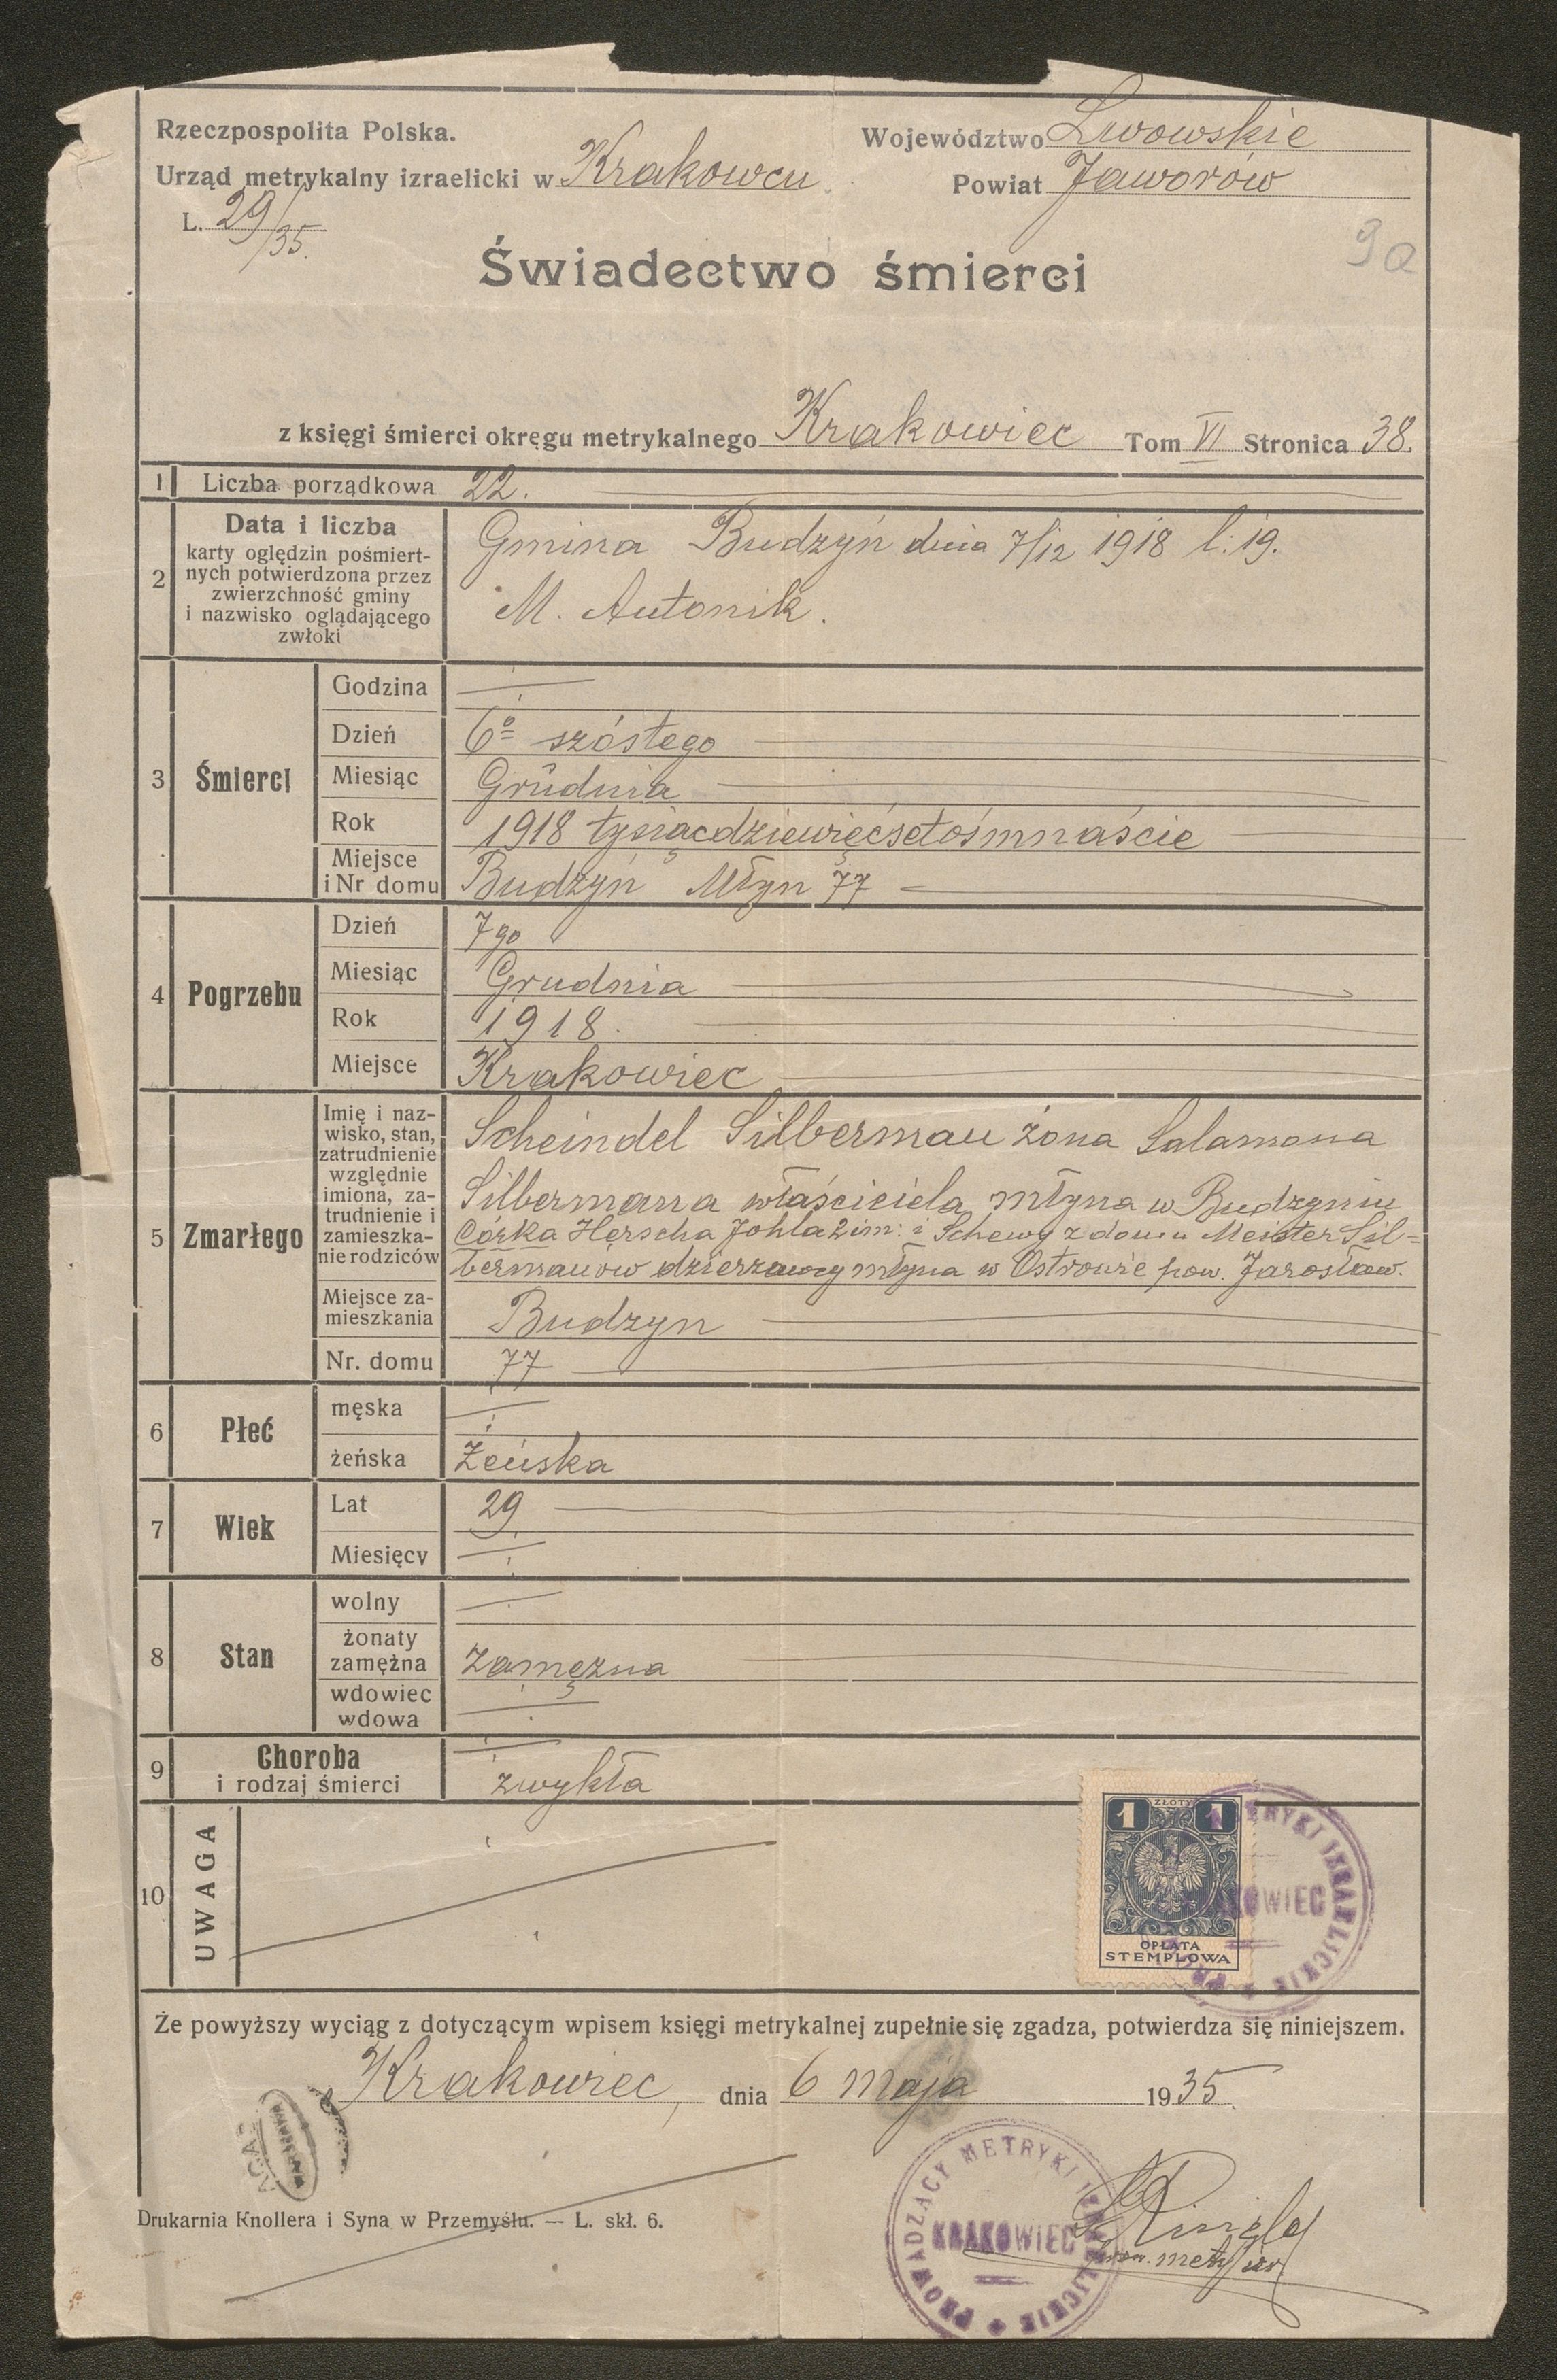 Rzeczpospolita Polska.
Województwo Lwowskie
Urząd metrykalny izraelicki w Krakowcu
Powiat Jaworów
L. 29/35.
90
Świadectwo śmierci
z księgi śmierci okręgu metrykalnego Krakowiec Tom VI Stronica 38.
1 Liczba porządkowa 22.
2 Data i liczba
karty oględzin pośmiert-
nych potwierdzona przez
zwierzchność gminy
i nazwisko oglądającego
zwłoki
Gmina Budzyń dnia 7/12 1918 l. 19.
M. Antonik.
3 Śmierci
Godzina
Dzień 6º szóstego
Miesiąc Grudnia
Rok 1918 tysiącdziewięćsetośmnaście
Miejsce
i Nr domu Budzyń Młyn 77
4 Pogrzebu
Dzień 7go
Miesiąc Grudnia
Rok 1918.
Miejsce Krakowiec
5 Zmarłego
Imię i naz-
wisko, stan,
zatrudnienie
względnie
imiona, za-
trudnienie i
zamieszka-
nie rodziców
Scheindel Silberman żona Salamona
Silbermana właściciela młyna w Budzyniu
Córka Herscha Johla 2 im: i Schewy z domu Meister Sil=
bermanów dzierzawcy młyna w Ostrowie pow. Jarosław.
Miejsce za-
mieszkania Budzyn
Nr. domu 77
6 Płeć
męska
żeńska Żeńska
7 Wiek
Lat 29
Miesięcy
8 Stan
wolny
żonaty
zamężna zamężna
wdowiec
wdowa
9 Choroba
i rodzaj śmierci zwykła
10 UWAGA
1 ZŁOTY 1
OPŁATA
STEMPLOWA
METRYKI IZRAELICKIE
KRAKOWIEC
Że powyższy wyciąg z dotyczącym wpisem księgi metrykalnej zupełnie się zgadza, potwierdza się niniejszem.
Krakowiec, dnia 6 maja 1935.
PROWADZĄCY METRYKI IZRAELICKIE
KRAKOWIEC
Drukarnia Knollera i Syna w Przemyślu. — L. skł. 6.